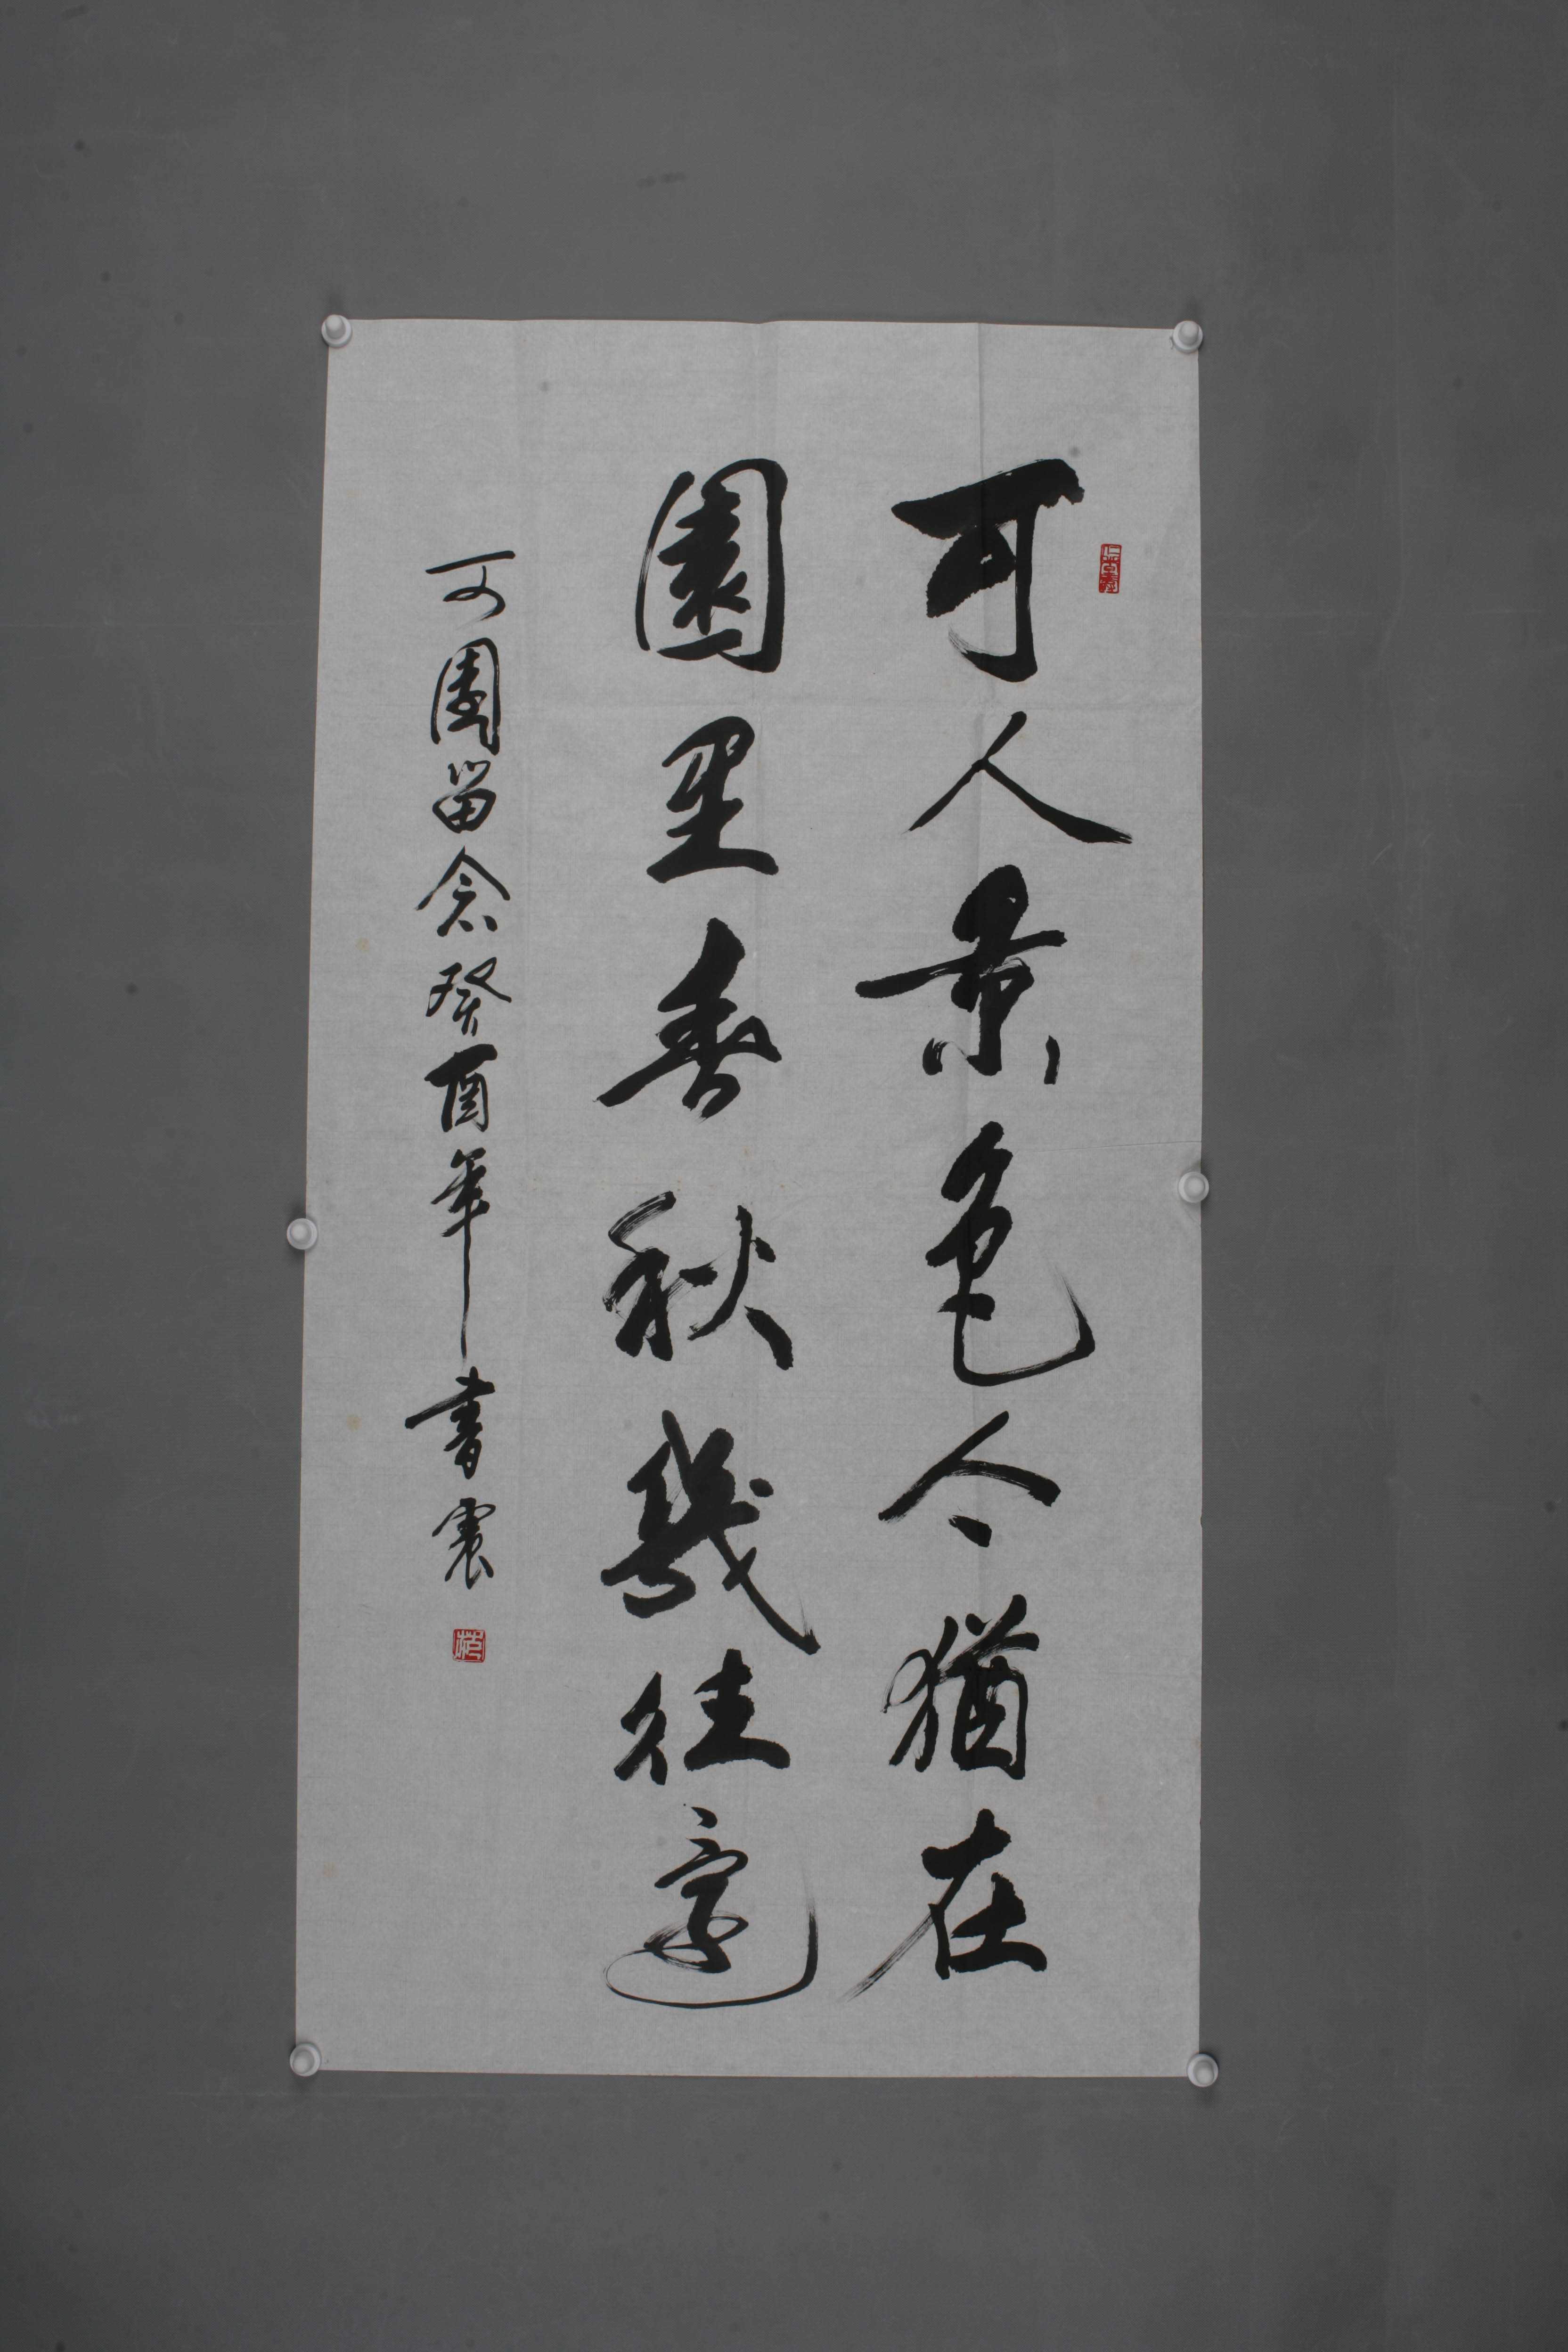 可人景色今猶在
園里春秋幾往還
可園留念癸酉年書震